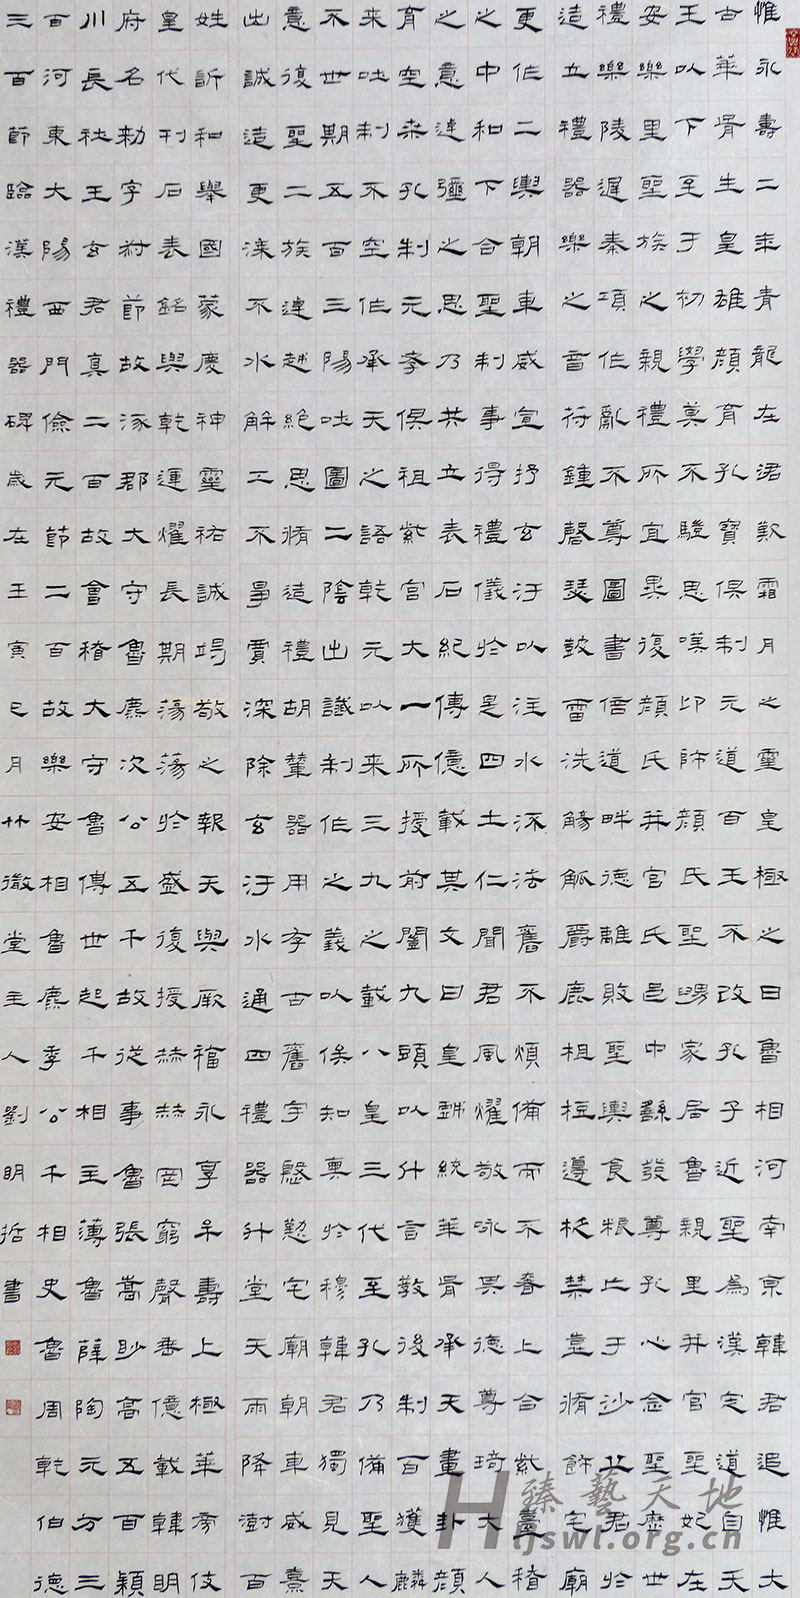 惟永壽二年青龍在涒歎霜月之靈皇極之日魯相河南京韓君追惟大
古華胥生皇雄顏育孔寶俱制元道百王不改孔子近聖為漢定道自天
王以下至于初學莫不驥思嘆卬師顏氏聖舅家居魯親里并官聖妃在
安樂里聖族之親禮所宜異復顏氏并官氏邑中繇發尊孔心念聖歷世
禮樂陵遲秦項作亂不尊圖書倍道畔德離敗聖輿食糧亡于沙丘君於
造立禮器樂之音符鍾磬瑟鼓雷洗觴觚爵鹿柤梪籩柉禁壺脩飾宅廟
更作二輿朝車威宣抒玄汙以注水流法舊不煩備而不奢上合紫臺稽
之中和下合聖制事得禮儀於是四士仁聞君風燿敬咏其德尊琦大人
之意逴彌之思乃共立表石紀傳億載其文曰皇戲統華胥承天畫卦顏
育空桑孔制元孝俱祖紫宮大一所授前闓九頭以什言教後制百獲麟
來吐制不空作承天之語乾元以來三九之載八皇三代至孔乃備聖人
不世期五百三陽吐圖二陰出讖制作之義以俟知奧於穆韓君獨見天
意復聖二族逴越絕思脩造禮胡輦器用存古舊宇慇懃宅廟朝車威熹
出誠造更漆不水解工不爭賈深除玄汙水通四禮器升堂天雨降澍百
姓訢和舉國蒙慶神靈祐誠竭敬之報天與厥福永享牟壽上極華旁伎
皇代刊石表銘與乾運燿長期蕩蕩於盛復授赫赫罔窮聲垂億載韓明
府名勑字叔節故涿郡大守魯麃次公五千故從事魯張嵩眇高五百潁
川長社王玄君真二百故會稽大守魯傅世起千相主薄魯薛陶元方三
百河東大陽西門儉元節二百故樂安相魯麃季公千相史魯周乾伯德
三百節臨漢禮器碑歲在壬寅巳月竹徹堂主人劉明哲書
臻藝天地
Hijswl.org.cn